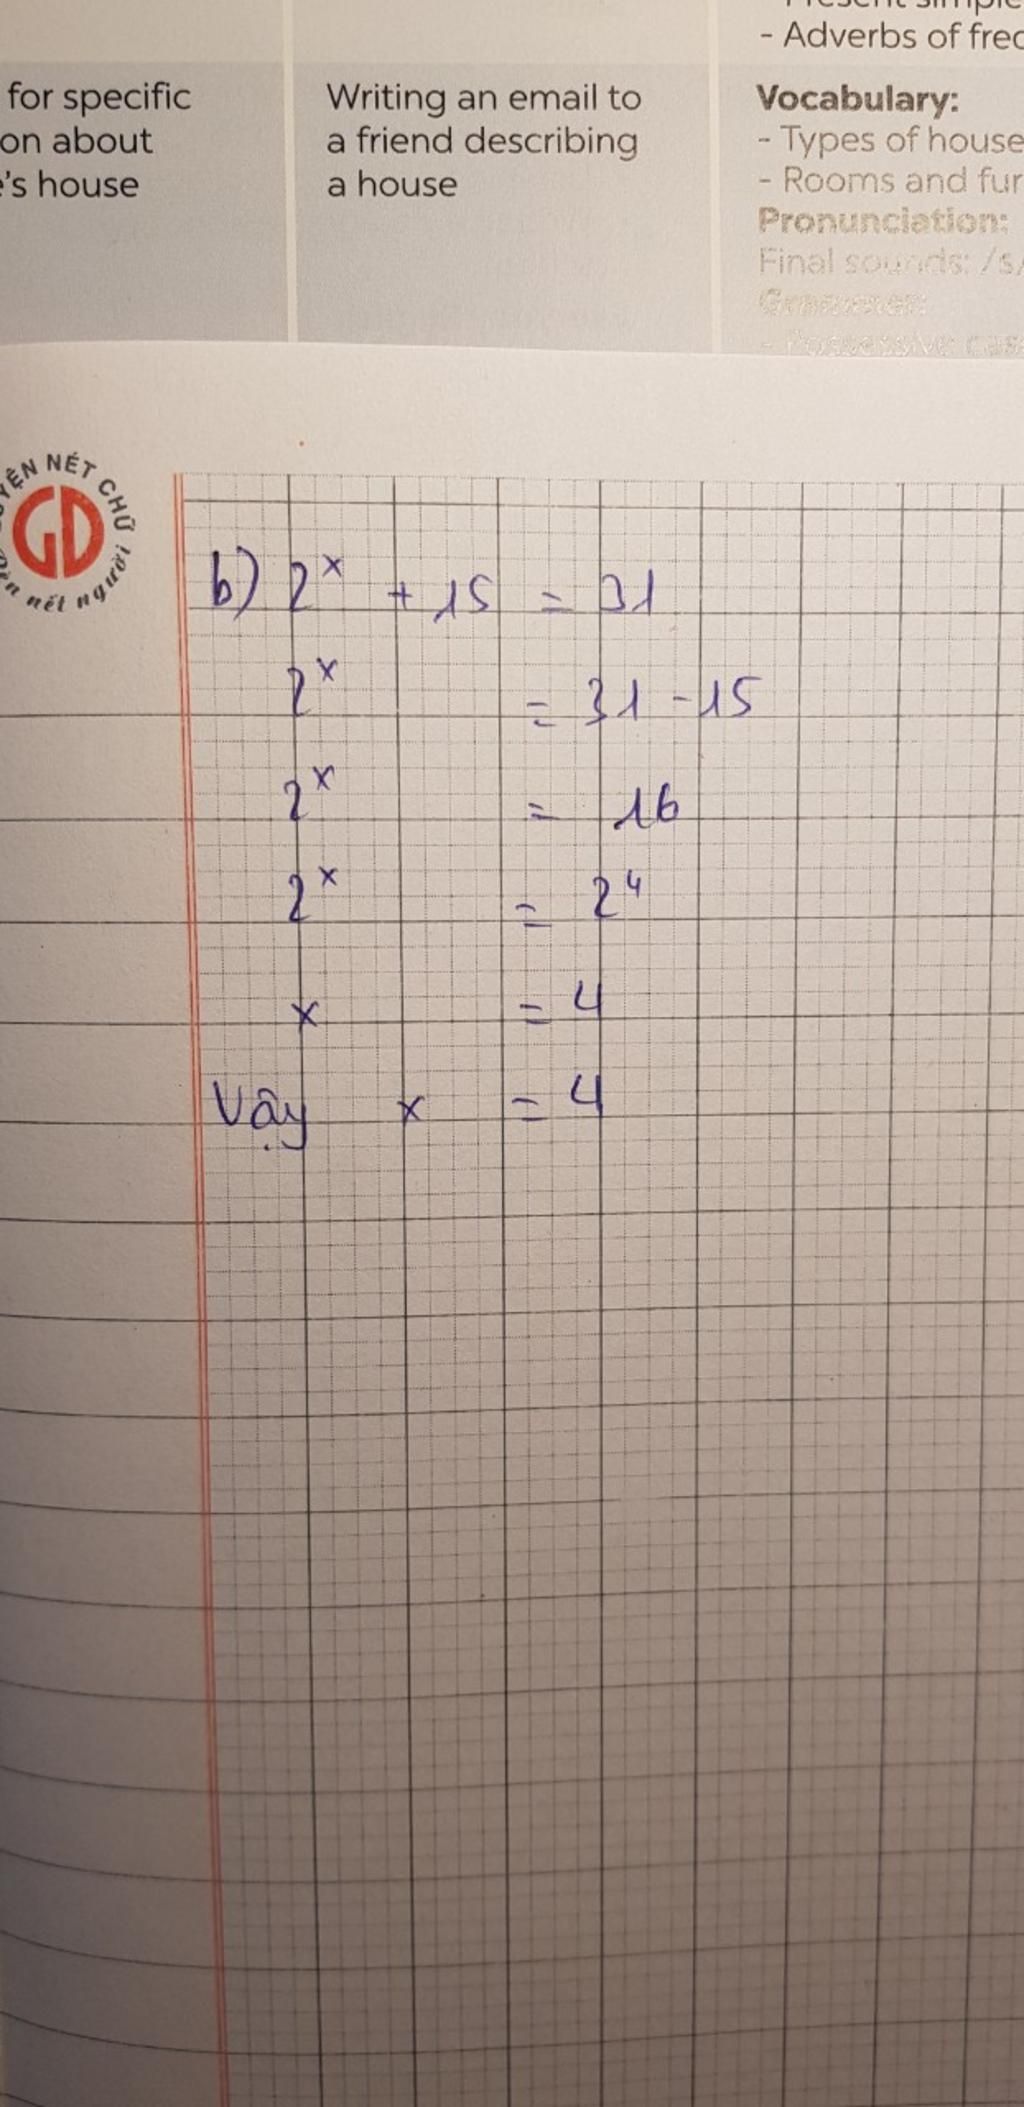 Present simple
- Adverbs of freq
for specific
on about
e's house
Writing an email to
a friend describing
a house
Vocabulary:
- Types of house
- Rooms and fur
Pronunciation:
Final sounds: /s/
Grammar:
- Possessive cas
YỆN NÉT CHỮ
GD
Rèn nết người
b) 2ˣ + 15 = 31
2ˣ = 31 - 15
2ˣ = 16
2ˣ = 2⁴
x = 4
Vậy x = 4